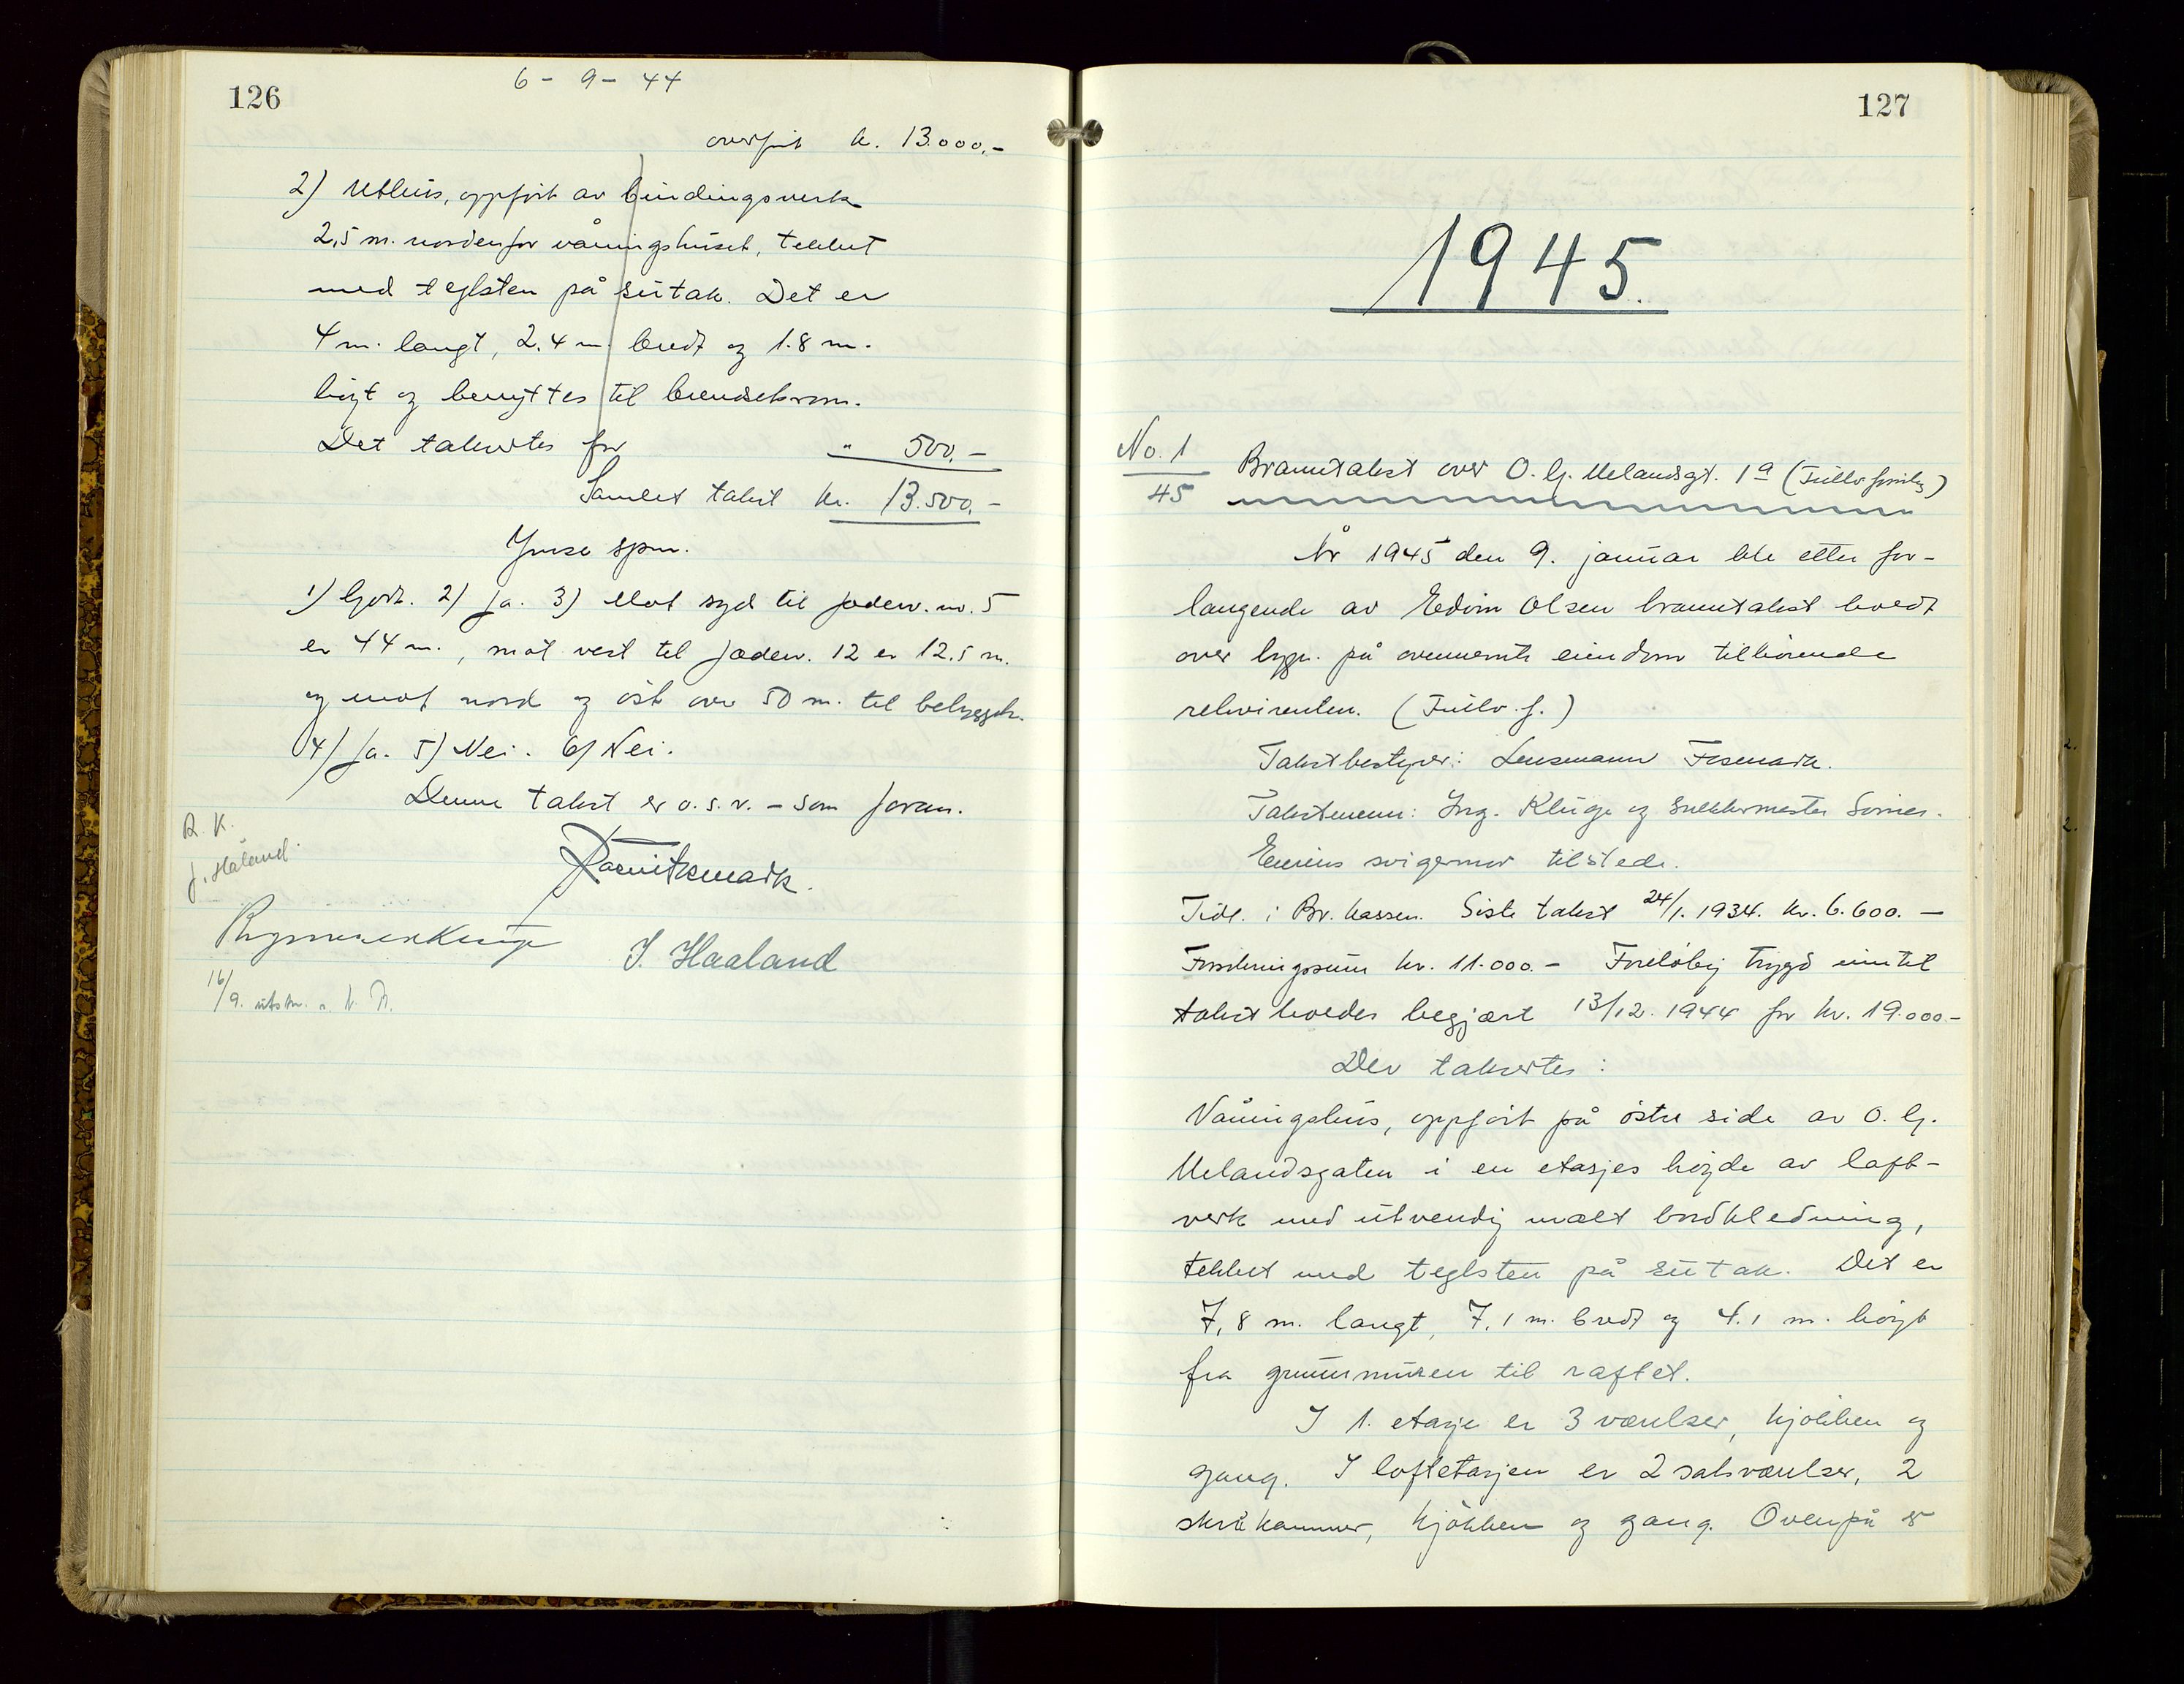 126
6 - 9 - 44
overført k. 13.000.-
2) Uthus, oppført av bindingsverk
2,5 m. nordenfor våningshuset, tekket
med teglsten på sutak. Det er
4 m. langt, 2.4 m. bredt og 1.8 m.
høyt og benyttes til brendselsrom.
Det takseres for " 500.-
Samlet takst kr. 13.500.-
Ymse spm.
1) Godt. 2) Ja. 3) Mot syd til Jæderv. no. 5
er 44 m., mot vest til Jæderv. 12 er 12.5 m.
og mot nord og öst over 50 m. til bebyggelse.
4) Ja. 5) Nei. 6) Nei.
Denne takst er o.s.v. - som foran.
R. K.
J. Håland.
J. Haaland
16/9. utskr.
127
1945.
No. 1
45
Branntakst over O. G. Melandsgt. 1a (Fullv. forsikr.)
År 1945 den 9. januar ble etter for-
langende av Edvin Olsen branntakst holdt
over bygn. på ovennevnte eiendom tilhörende
rekvirenten. (Fullv. f.)
Takstbestyrer: Lensmann Fosmark.
Takstmenn: Ing. Kluge og snekkermester Sömes.
Eierens svigermor tilstede.
Tidl. i Br. kassen. Siste takst 24/1. 1934. kr. 6.600.-
Forsikringssum kr. 11.000.- Foreløbig trygd inntil
takst holdes begjært 13/12. 1944 for kr. 19.000.-
Der takseres:
Våningshus, oppfört på östre side av O. G.
Melandsgaten i en etasjes höyde av laft-
verk med utvendig malt bordkledning,
tekket med teglsten på sutak. Det er
7,8 m. langt, 7.1 m. bredt og 4.1 m. höyt
fra grunnmuren til raftet.
I 1. etasje er 3 værelser, kjökken og
gang. I loftetasjen er 2 salsværelser, 2
skråkammer, kjökken og gang. Ovenpå er